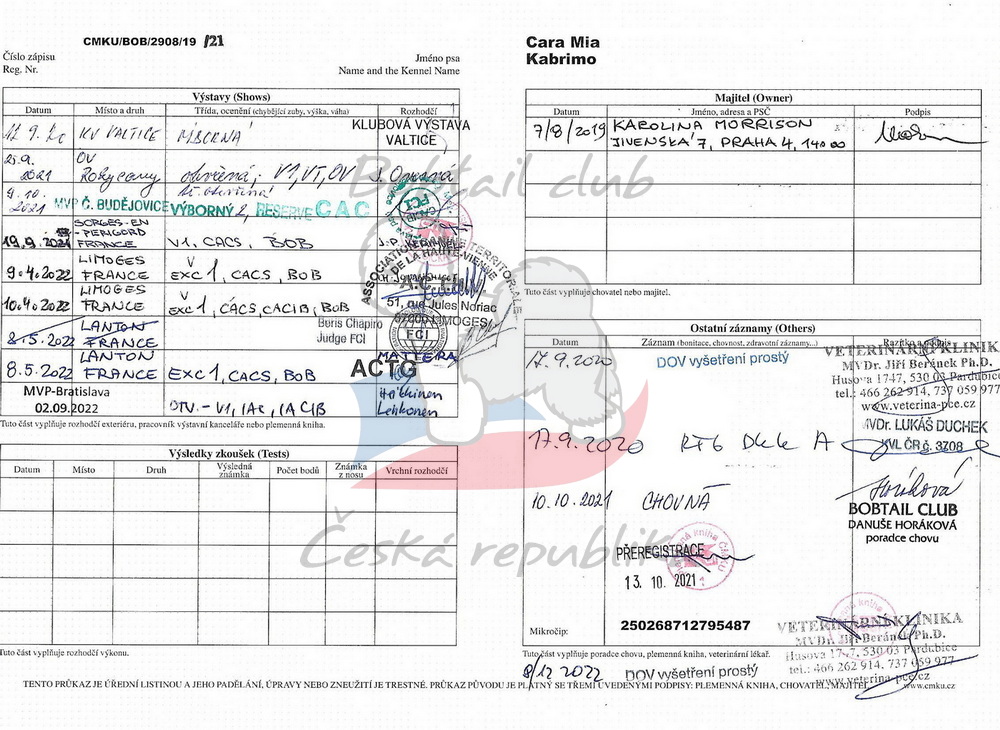 CMKU/BOB/2908/19 /21
Číslo zápisu
Reg. Nr.
Jméno psa
Name and the Kennel Name
Cara Mia
Kabrimo
Výstavy (Shows)
Datum Místo a druh Třída, ocenění (chybějící zuby, výška, váha) Rozhodčí
KV VALTICE
KLUBOVÁ VÝSTAVA
VALTICE
25.9. 2021 OV
V1, VT, OV
9.10. 2021 MVP Č. BUDĚJOVICE VÝBORNÝ 2, RESERVE CAC
19.9.2021 SORGES-EN
-PERIGORD
FRANCE V1, CACS, BOB
9.4.2022 LIMOGES
FRANCE EXC 1, CACS, BOB
10.4.2022 LIMOGES
FRANCE EXC 1, CACS, CACIB, BOB
51, rue Jules Noriac
87000 LIMOGES
Boris Chapiro
Judge FCI
8.5.2022 LANTON
FRANCE
FCI
8.5.2022 LANTON
FRANCE EXC 1, CACS, BOB
MATTERA
ACTG
MVP-Bratislava
02.09.2022
Lehkonen
Tuto část vyplňuje rozhodčí exteriéru, pracovník výstavní kanceláře nebo plemenná kniha.
Výsledky zkoušek (Tests)
Datum Místo Druh Výsledná známka Počet bodů Známka z nosu Vrchní rozhodčí
Tuto část vyplňuje rozhodčí výkonu.
Majitel (Owner)
Datum Jméno, adresa a PSČ Podpis
7/8/2019 KAROLINA MORRISON
JIVENSKÁ 7, PRAHA 4, 140 00
Tuto část vyplňuje chovatel nebo majitel.
Ostatní záznamy (Others)
Datum Záznam (bonitace, chovnost, zdravotní záznamy...) Razítko a podpis
17.9.2020 DOV vyšetření prostý
VETERINÁRNÍ KLINIKA
MVDr. Jiří Beránek Ph.D.
Husova 1747, 530 03 Pardubice
tel.: 466 262 914, 737 059 977
www.veterina-pce.cz
17.9.2020 RTG DKK A
MVDr. LUKÁŠ DUCHEK
KVL ČR č. 3708
10.10.2021 CHOVNÁ
Horáková
BOBTAIL CLUB
DANUŠE HORÁKOVÁ
poradce chovu
PŘEREGISTRACE
13. 10. 2021
Mikročip: 250268712795487
VETERINÁRNÍ KLINIKA
MVDr. Jiří Beránek Ph.D.
Husova 1747, 530 03 Pardubice
tel.: 466 262 914, 737 059 977
www.veterina-pce.cz
Tuto část vyplňuje poradce chovu, plemenná kniha, veterinární lékař.
8/12 2022 DOV vyšetření prostý
TENTO PRŮKAZ JE ÚŘEDNÍ LISTINOU A JEHO PADĚLÁNÍ, ÚPRAVY NEBO ZNEUŽITÍ JE TRESTNÉ. PRŮKAZ PŮVODU JE PLATNÝ SE TŘEMI UVEDENÝMI PODPISY: PLEMENNÁ KNIHA, CHOVATEL, MAJITEL
www.cmku.cz
Bobtail club
Česká republika